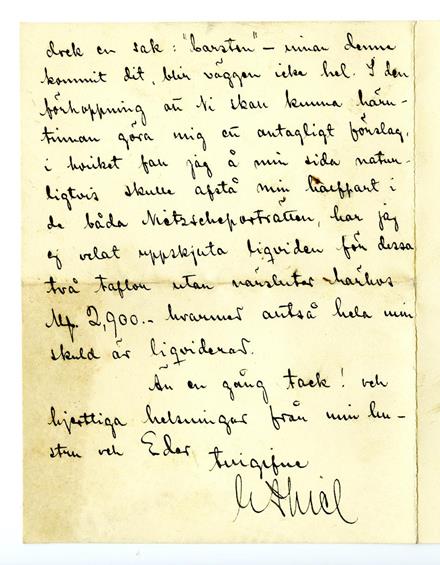 drek en sak: "Carsten" – innan denne
kommit dit, blir väggen icke hel. I den
förhoppning att Ni skall kunna häru-
tinnan göra mig ett antagligt förslag,
i hvilket fall jag å min sida natur-
ligtvis skulle afstå min hälftpart i
de båda Nietzscheporträtten, har jag
ej velat uppskjuta liqviden för dessa
två taflor utan närsluter härhos
Mk. 2,900.– hvarmed alltså hela min
skuld är liqviderad.
Än en gång tack! och
hjertliga helsningar från min hu-
stru och Eder
tillgifne